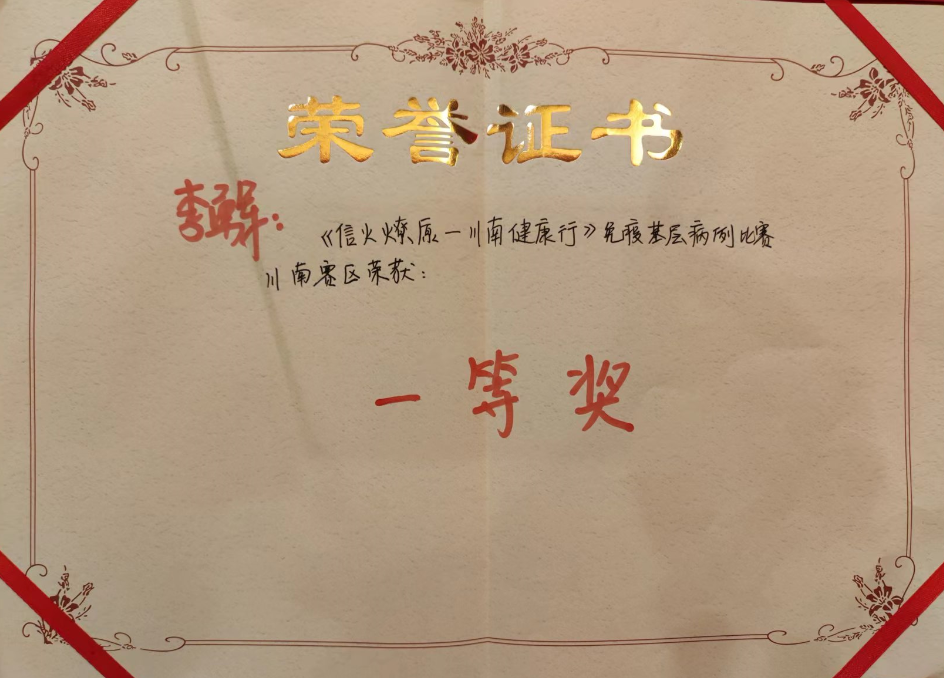 荣誉证书
李
《信火燎原一川南健康行》免疫基层病例比赛
川南赛区荣获：
一等奖